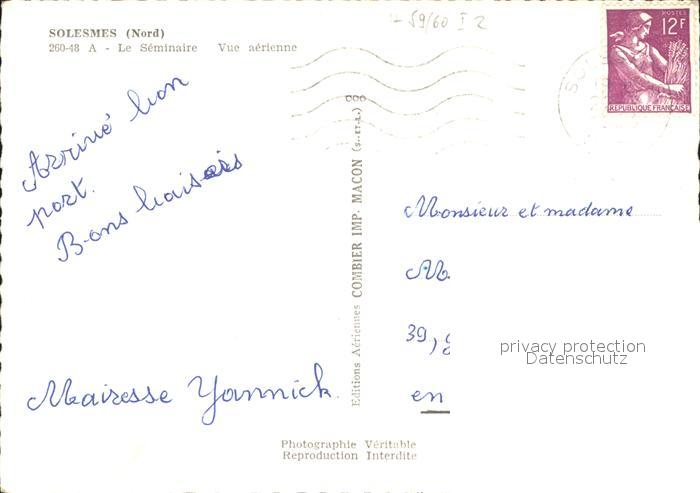 SOLESMES (Nord)
260-48 A - Le Séminaire Vue aérienne
59/60 I 2
POSTES
12F
REPUBLIQUE FRANÇAISE
Arrivé bon
port.
Bons baisers
Mairesse Yannick.
Editions Aériennes COMBIER IMP. MACON (S.-ET-L.)
Monsieur et madame
M
39,
en
privacy protection
Datenschutz
Photographie Véritable
Reproduction Interdite